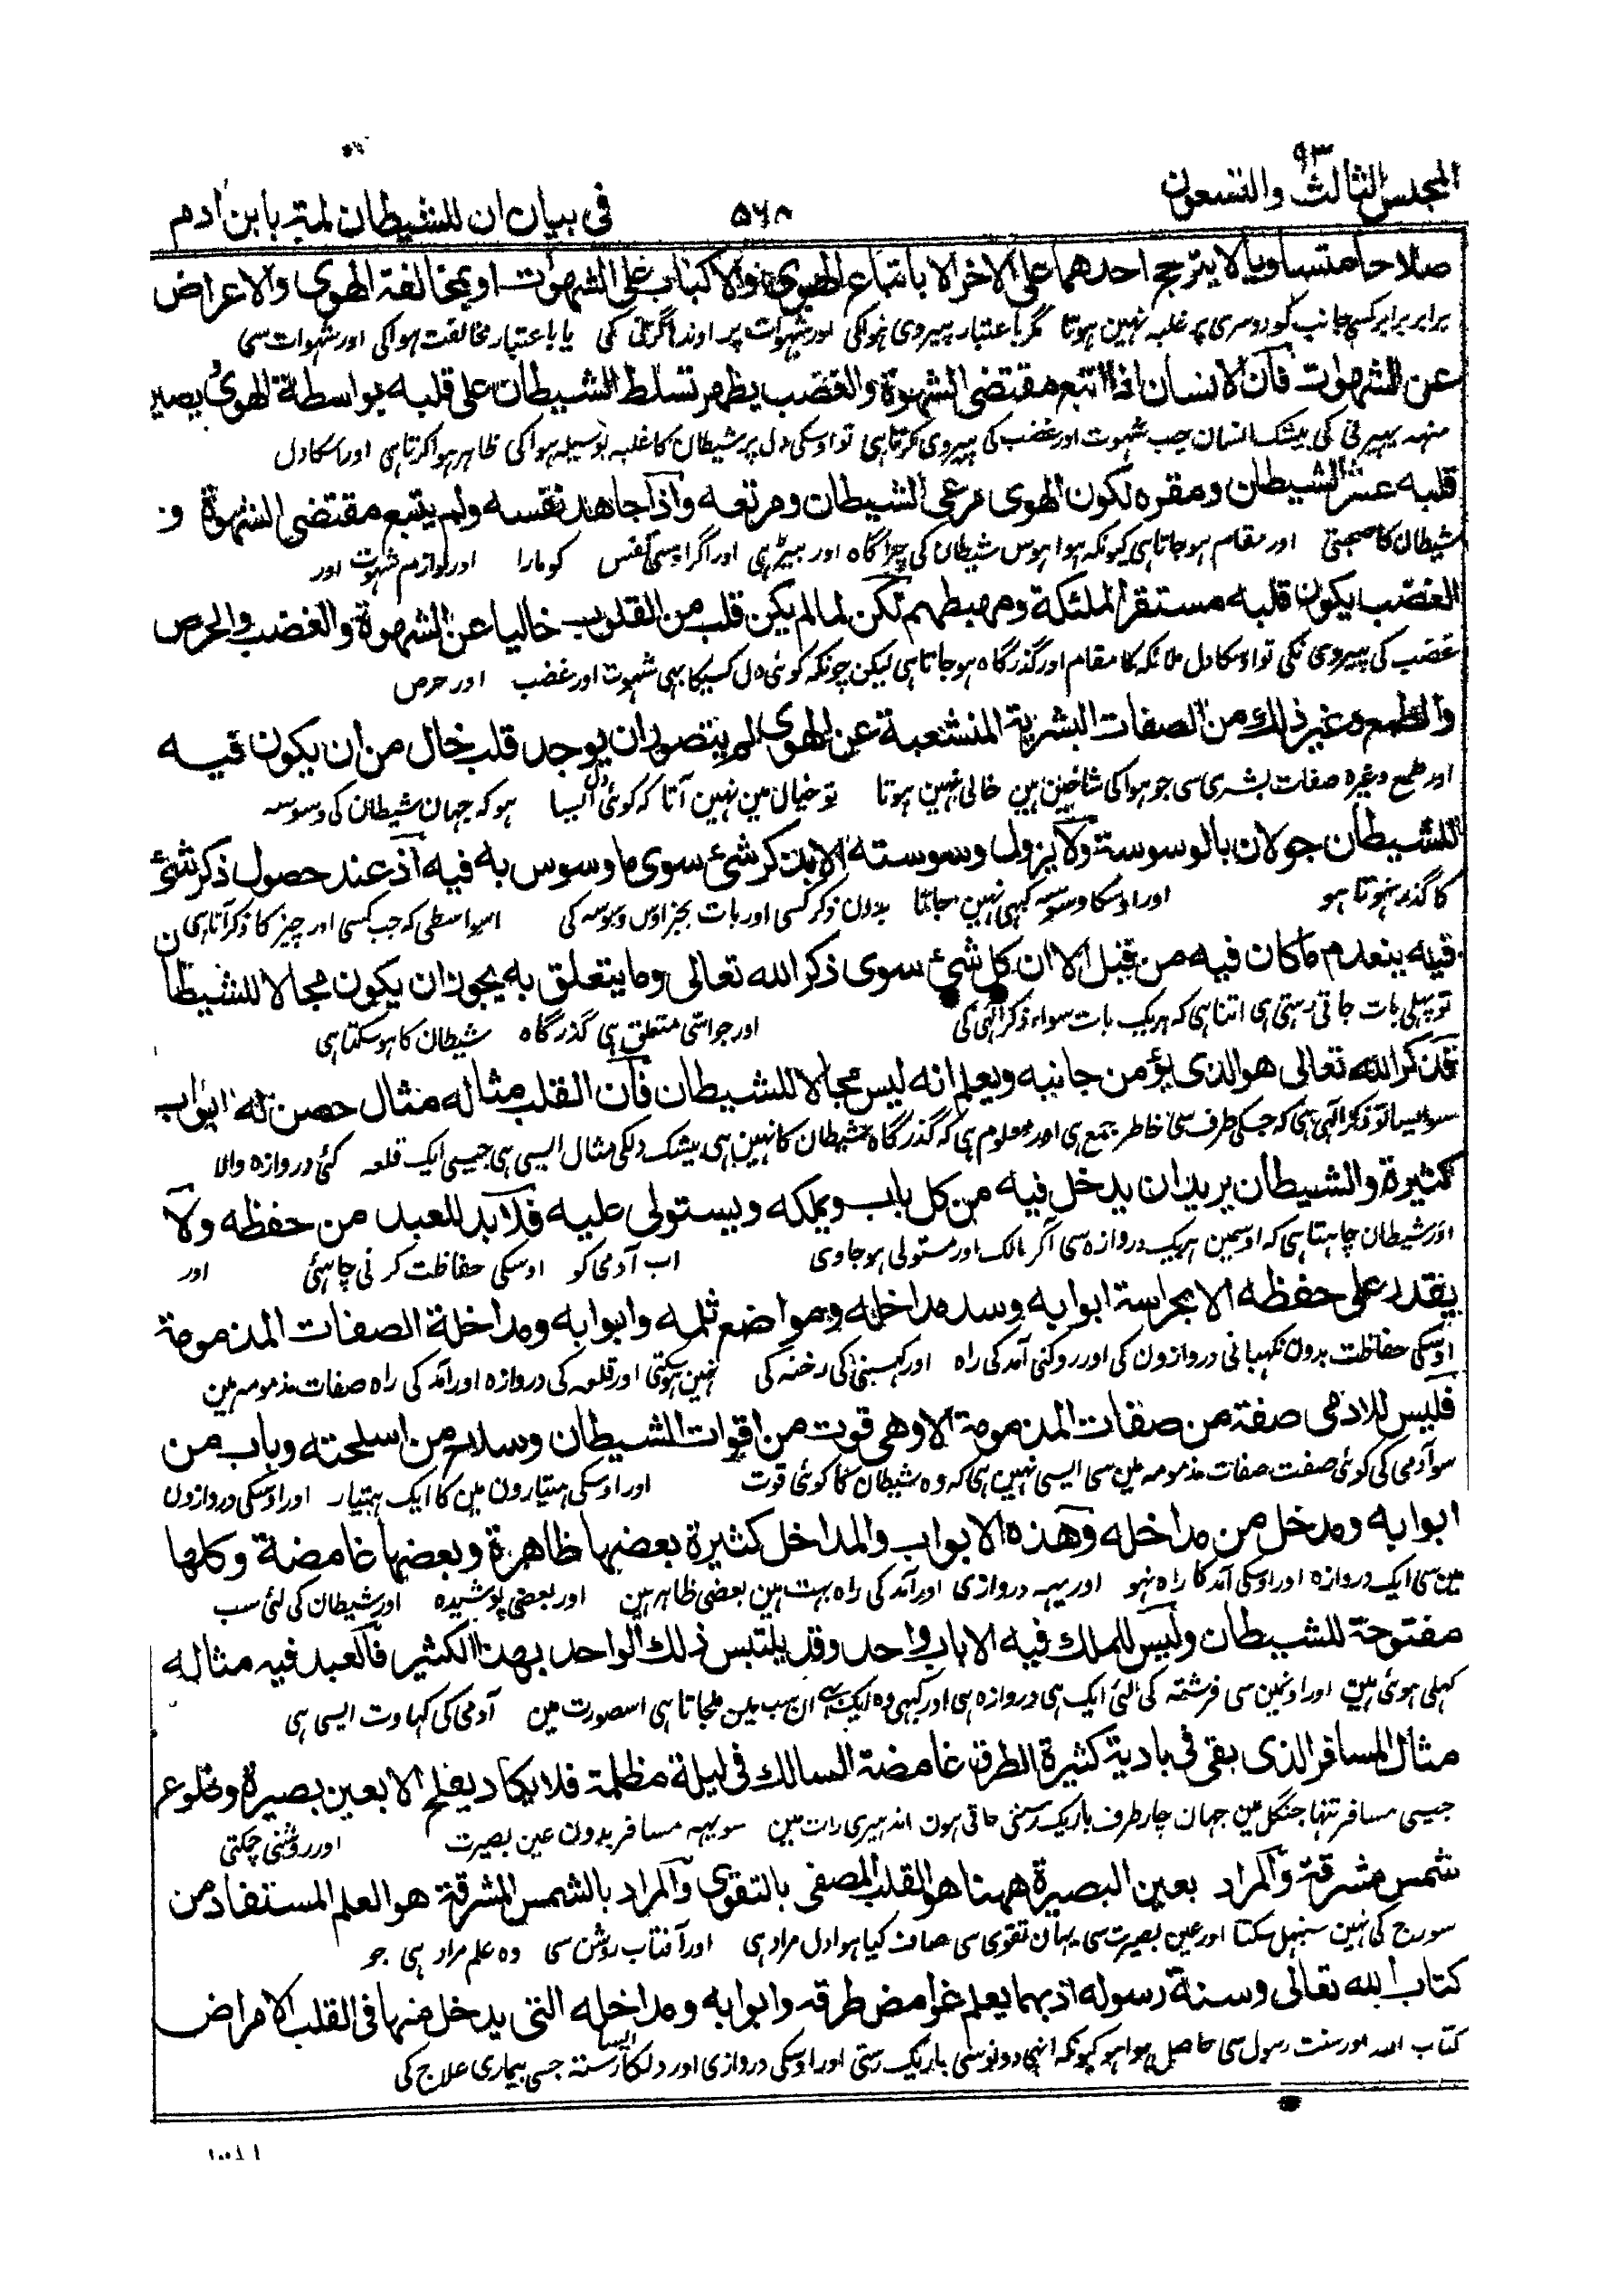 المجلس الثالث والتسعون ٩٣
۵۶۸
فی بیان ان للشیطان لمة بابن ادم
صلاحا متساویا لا یترجح احدهما علی الاخر الا باتباع الهوی والاکباب علی الشهوات او بمخالفة الهوی والاعراض
برابر برابر کسی جانب کو دوسری پر غلبہ نہین ہوتا مگر باعتبار پیروی ہواکی اور شہوات پر اوندا گرنی کی یا باعتبار مخالفت ہواکی اور شہوات سی
عن الشهوات فان الانسان اذا اتبع مقتضی الشهوة والغضب یظهر تسلط الشیطان علی قلبه بواسطة الهوی یصیر
منہہ پہیرنی کی بیشک انسان جب شہوت اور غضب کی پیروی کرتا ہی تو اوسکی دل پر شیطان کا غلبہ بوسیلہ ہواکی ظاہر ہوا کرتا ہی اور اسکا دل
قلبه عش الشیطان ومقره لکون الهوی مرعی الشیطان ومرتعه واذا جاهد نفسه ولم یتبع مقتضی الشهوة و
شیطان کا اور مقام ہو جاتا ہی کیونکہ ہوا ہوس شیطان کی چراگاہ اور بیڑ ہی اور اگر اوسی نفس کو مارا اور لوازم شہوت اور
الغضب یکون قلبه مستقر الملئکة ومهبطهم لکن لما لم یکن قلب من القلوب خالیا عن الشهوة والغضب والحرص
غضب کی پیروی نکی تو اوسکا دل ملائکہ کا مقام اور گذرگاہ ہو جاتا ہی لیکن چونکہ کوئی دل کسیکا بہی شہوت اور غضب اور حرص
والطمع وغیر ذلك من الصفات البشریة المنشعبة عن الهوی لم یتصور ان یوجد قلب خال من ان یکون فیه
اور طمع وغیرہ صفات بشری سی جو ہوا کی شاخین ہین خالی نہین ہوتا تو خیال مین نہین آتا کہ کوئی دل ایسا ہو کہ جہان شیطان کی وسوسہ
للشیطان جولان بالوسوسة ولا یزول وسوسته الا بذکر شئ سوی ما وسوس به فیه اذ عند حصول ذکر شئ
کا گذر نہوتا ہو اور اوسکا وسوسہ کبہی نہین جاتا بدون ذکر کسی اور بات بجز اوس وسوسہ کی اسواسطی کہ جب کسی اور چیز کا ذکر آتا ہی
فیه ینعدم ما کان فیه من قبل الا ان کل شئ سوی ذکر الله تعالی وما یتعلق به یجوز ان یکون مجالا للشیطان
تو پہلی بات جاتی رہتی ہی اتنا ہی کہ ہریک بات سواء ذکر الٰہی کی اور جو اسی متعلق ہی گذرگاہ شیطان کا ہو سکتا ہی
فذکر الله تعالی هو الذی یؤمن جانبه ویعلم انه لیس مجالا للشیطان فان القلب مثاله مثال حصن له ابواب
سو ایسا تو ذکر الٰہی ہی کہ جسکی طرف سی خاطر جمع ہی اور معلوم ہی کہ گذرگاہ شیطان کا نہین ہی بیشک دلکی مثال ایسی ہی جیسی ایک قلعہ کئی دروازہ والا
کثیرة والشیطان یرید ان یدخل فیه من کل باب ویملکه ویستولی علیه فلا بد للعبد من حفظه ولا
اور شیطان چاہتا ہی کہ اوسمین ہریک دروازہ سی آکر مالک اور مستولی ہو جاوی اب آدمی کو اوسکی حفاظت کرنی چاہئی اور
یقدر علی حفظه الا بحراسة ابوابه وسد مداخله ومواضع ثلمه وابوابه ومداخلة الصفات المذمومة
اوسکی حفاظت بدون نگہبانی دروازون کی اور روکنی آمد کی راہ اور رخنہ کی نہین ہوسکتی اور قلعہ کی دروازہ اور آمد کی راہ صفات مذمومہ ہین
فلیس للادمی صفة من صفات المذمومة الا وهی قوت من اقوات الشیطان وسلاح من اسلحته وباب من
سو آدمی کی کوئی صفت صفات مذمومہ مین سی ایسی نہین ہی کہ وہ شیطان کا کوئی قوت اور اوسکی ہتیارون مین کا ایک ہتیار اور اوسکی دروازون
ابوابه ومدخل من مداخله وهذه الابواب والمداخل کثیرة بعضها ظاهرة وبعضها غامضة وکلها
مین سی ایک دروازہ اور اوسکی آمد کا راہ نہو اور یہہ دروازی اور آمد کی راہ بہت ہین بعضی ظاہر ہین اور بعضی پوشیدہ اور شیطان کی لئی سب
مفتوحة للشیطان ولیس للملك فیه الا باب واحد وقد یلتبس ذلك الواحد بهذا الکثیر فالعبد فیه مثاله
کہلی ہوئی ہین اور اونمین سی فرشتہ کی لئی ایک ہی دروازہ ہی اور کبہی وہ ایک ان سب مین ملجاتا ہی اسصورت مین آدمی کی کہاوت ایسی ہی
مثال المسافر الذی بقی فی بادیة کثیرة الطرق غامضة المسالك فی لیلة مظلمة فلا یکاد یفلح الا بعین بصیرة وطلوع
جیسی مسافر تنہا جنگل مین جہان چار طرف باریک رستی جاتی ہون اندہیری رات مین سو یہہ مسافر بدون عین بصیرت اور روشنی چمکتی
شمس مشرقة والمراد بعین البصیرة ههنا هو القلب المصفی بالتقوی والمراد بالشمس المشرقة هو العلم المستفاد من
سورج کی نہین سنبہل سکتا اور عین بصیرت سی یہان تقوی سی صاف کیا ہوا دل مراد ہی اور آفتاب روشن سی وہ علم مراد ہی جو
کتاب الله تعالی وسنة رسوله اذ بهما یعلم غوامض طرقه وابوابه ومداخله التی یدخل منها فی القلب الامراض
کتاب اللہ اور سنت رسول سی حاصل ہوا ہو کیونکہ انہی دونوسی باریک رستی اور اوسکی دروازی اور دلکا ایسا رستہ جسی بیماری علاج کی